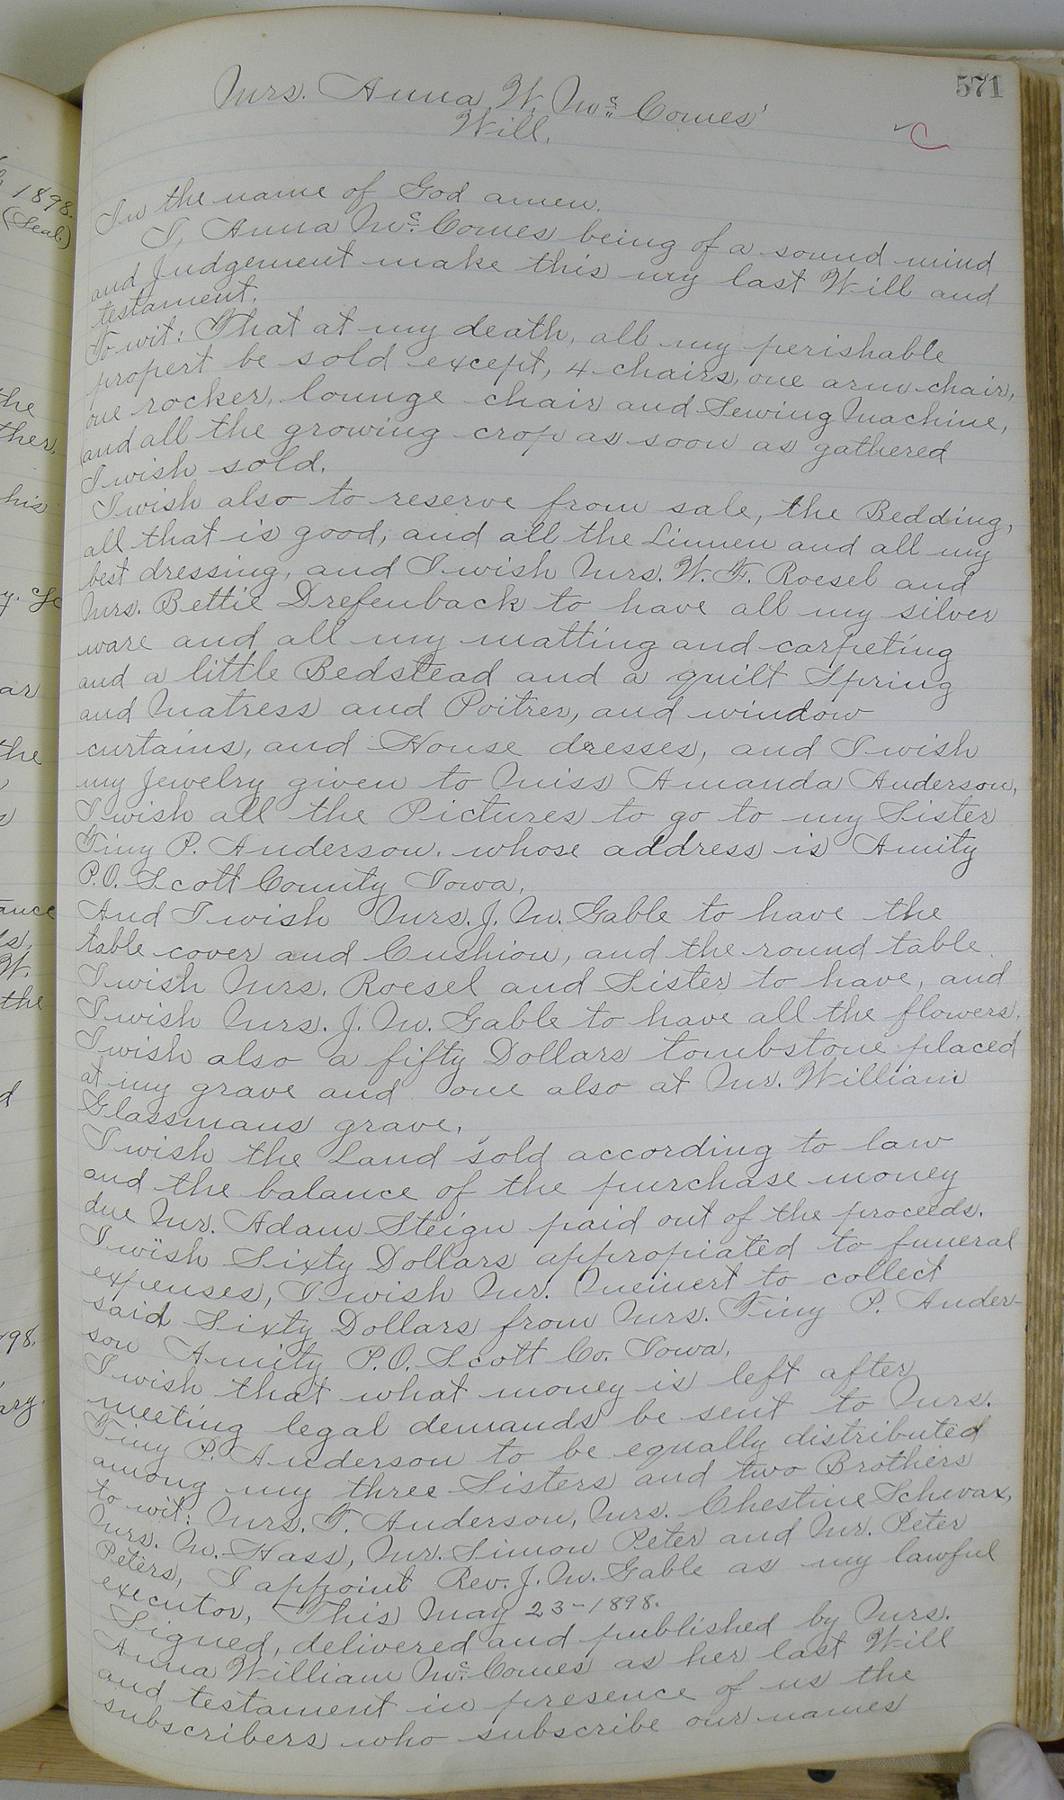 571
Mrs. Anna W. Mc. Comes'
Will.
C
In the name of God amen.
I, Anna Mc. Comes being of a sound mind
and Judgement make this my last Will and
testament.
To wit: That at my death, all my perishable
propert be sold except, 4 chairs, one arm-chair,
one rocker, lounge chair and Sewing Machine,
and all the growing crop as soon as gathered
I wish sold.
I wish also to reserve from sale, the Bedding,
all that is good, and all the Linnen and all my
best dressing, and I wish Mrs. W. F. Roesel and
Mrs. Bettie Drefenback to have all my silver
ware and all my matting and carpeting
and a little Bedstead and a quilt Spring
and Matress and Poitrer, and window
curtains, and House dresses, and I wish
my Jewelry given to Miss Amanda Anderson,
I wish all the Pictures to go to my Sister
Tiny P. Anderson. whose address is Amity
P.O. Scott County Iowa.
And I wish Mrs. J. M. Gable to have the
table cover and Cushion, and the round table
I wish Mrs. Roesel and Sister to have, and
I wish Mrs. J. M. Gable to have all the flowers.
I wish also a fifty Dollars tombstone placed
at my grave and one also at Mr. William
Glassmans grave.
I wish the Land sold according to law
and the balance of the purchase money
due Mr. Adam Steign paid out of the proceeds.
I wish Sixty Dollars appropiated to funeral
expenses, I wish Mr. Meinert to collect
said Sixty Dollars from Mrs. Tiny P. Ander-
son Amity P.O. Scott Co. Iowa.
I wish that what money is left after
meeting legal demands be sent to Mrs.
Tiny P. Anderson to be equally distributed
among my three Sisters and two Brothers
to wit: Mrs. T. Anderson, Mrs. Chestine Schwax,
Mrs. M. Hass, Mr. Simon Peter and Mr. Peter
Peters, I appoint Rev. J. M. Gable as my lawful
executor, This May 23-1898.
Signed, delivered and published by Mrs.
Anna William Mc. Comes as her last Will
and testament in presence of us the
subscribers who subscribe our names